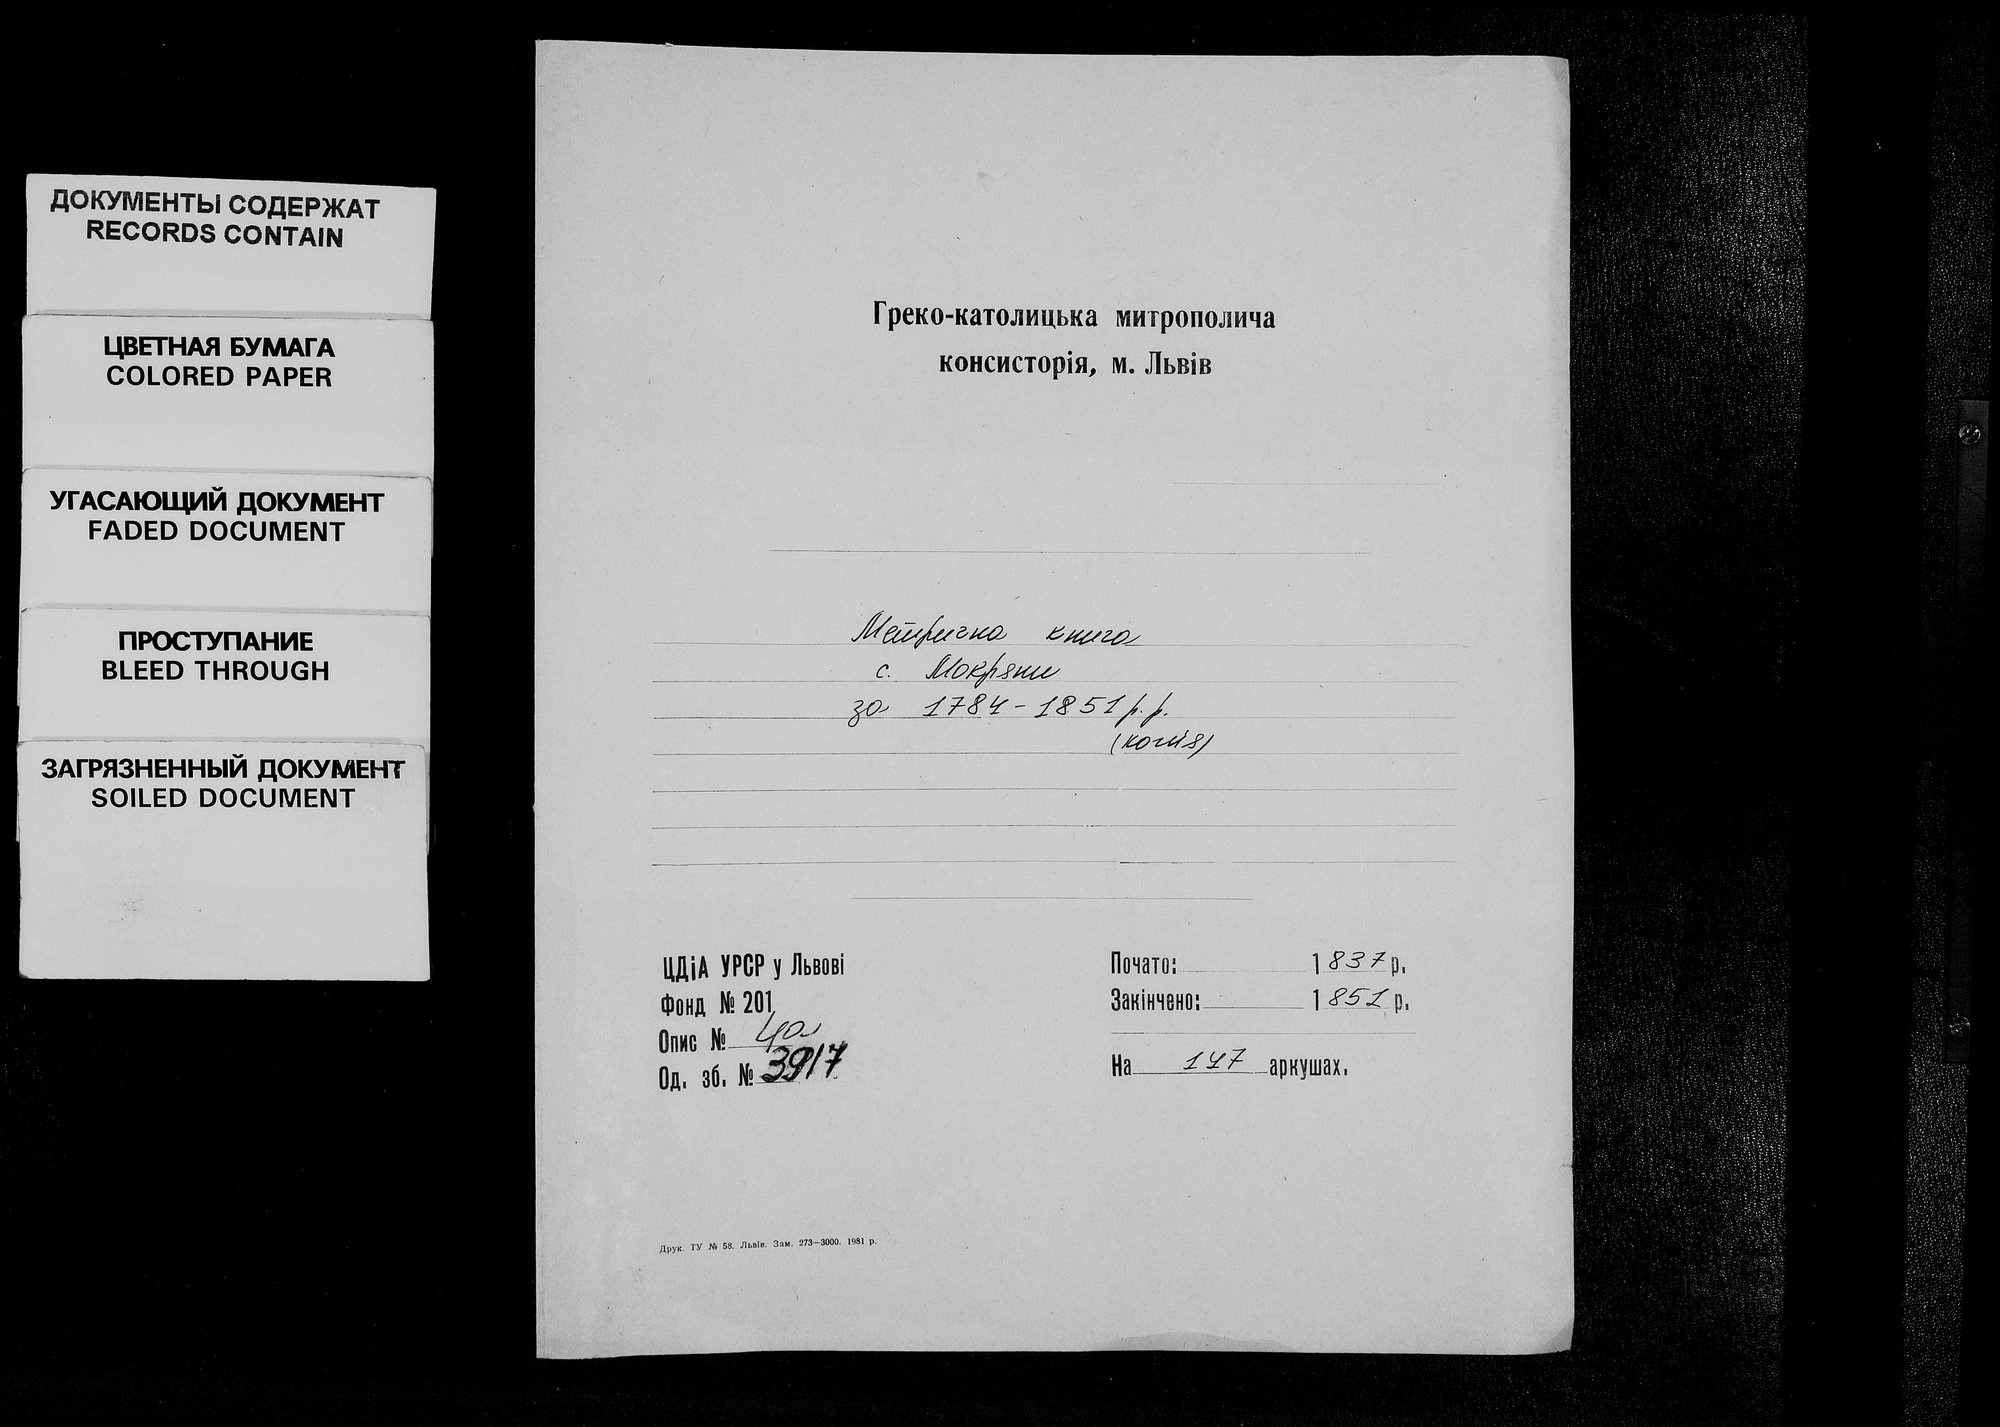 ДОКУМЕНТЫ СОДЕРЖАТ
RECORDS CONTAIN
ЦВЕТНАЯ БУМАГА
COLORED PAPER
УГАСАЮЩИЙ ДОКУМЕНТ
FADED DOCUMENT
ПРОСТУПАНИЕ
BLEED THROUGH
ЗАГРЯЗНЕННЫЙ ДОКУМЕНТ
SOILED DOCUMENT
Греко-католицька митрополича
консисторія, м. Львів
Метрична книга
с. Мокряни
за 1784-1851 р.р.
(копія)
ЦДІА УРСР у Львові
Фонд № 201
Опис № 4а
Од. зб. № 3917
Почато: 1837 р.
Закінчено: 1851 р.
На 147 аркушах.
Друк. ТУ № 58. Львів. Зам. 273—3000. 1981 р.